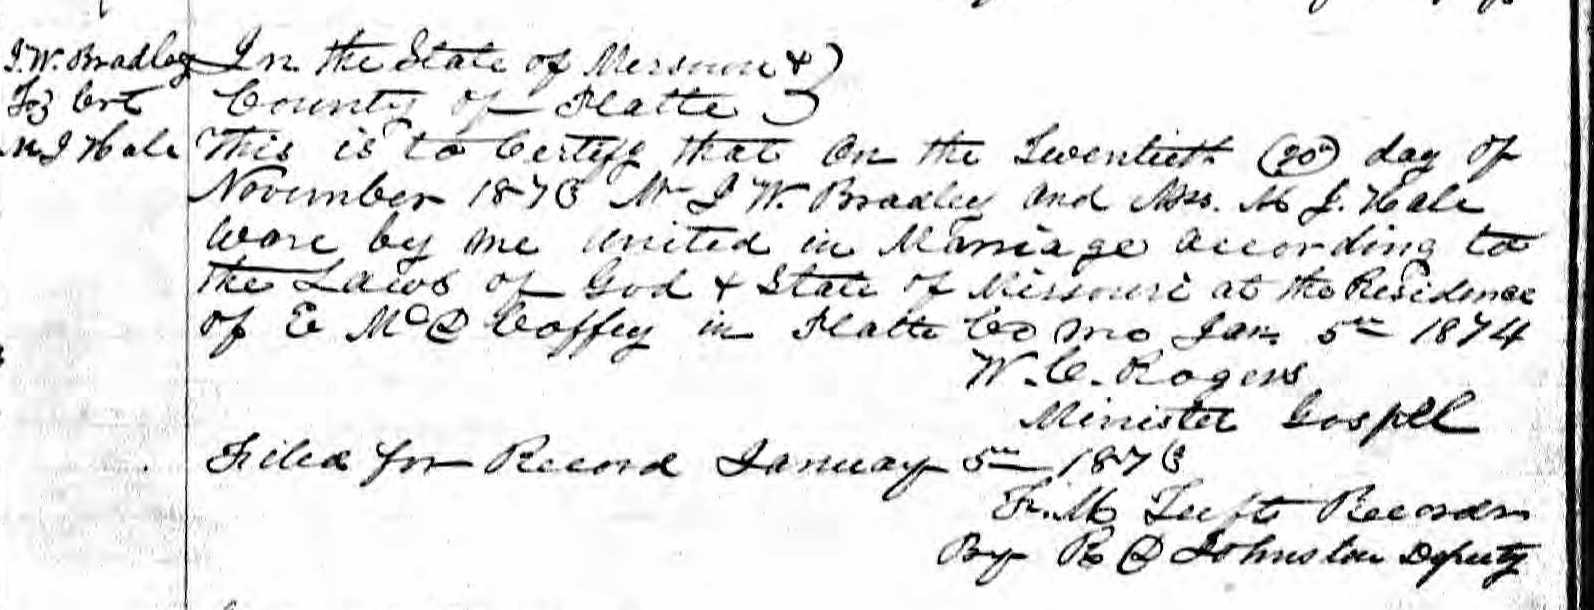 J. W. Bradley
To } Cert
M J Hale
In the State of Missouri & )
County of Platte )
This is to Certify that On the Twentieth (20th) day of
November 1873 Mr J W. Bradley and Mrs. M J. Hale
Ware by me united in Marriage according to
the Laws of God & State of Missouri at the Residence
of E McD Coffey in Platte Co Mo Jan 5th 1874
W. C. Rogers
Minister Gospel
Filed for Record January 5th 1873
F. M Tufts Recorder
By R D Johnston Deputy